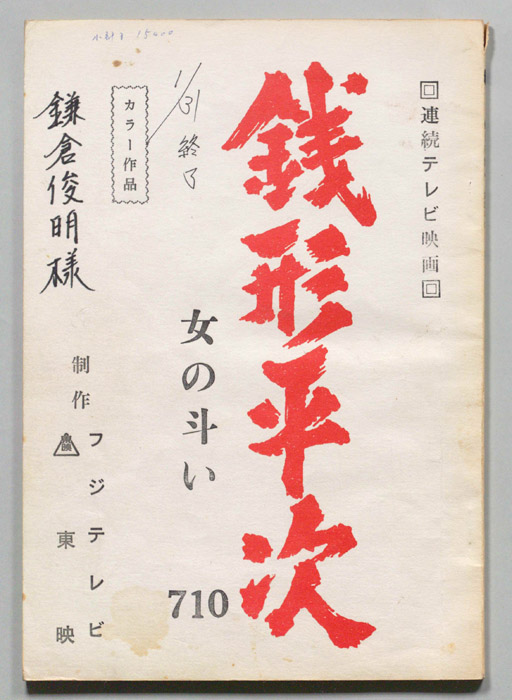 連続テレビ映画
銭形平次
女の斗い
710
1/31 終了
カラー作品
鎌倉俊明様
制作
フジテレビ
東映